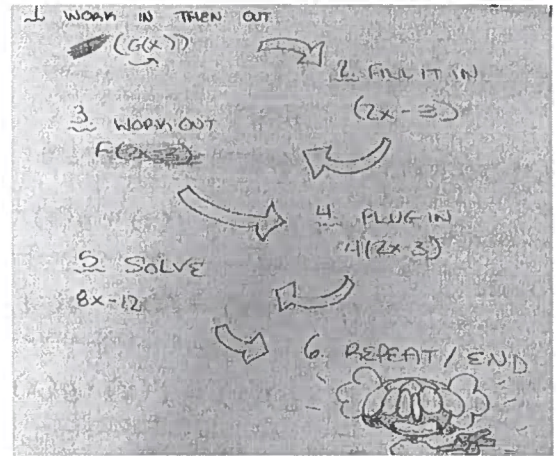 1 WORK IN THEN OUT
(G(x))
2. FILL IT IN
(2x - 3)
3 WORK OUT
F(2x-3)
4 PLUG IN
4(2x-3)
5 SOLVE
8x-12
6. REPEAT / END